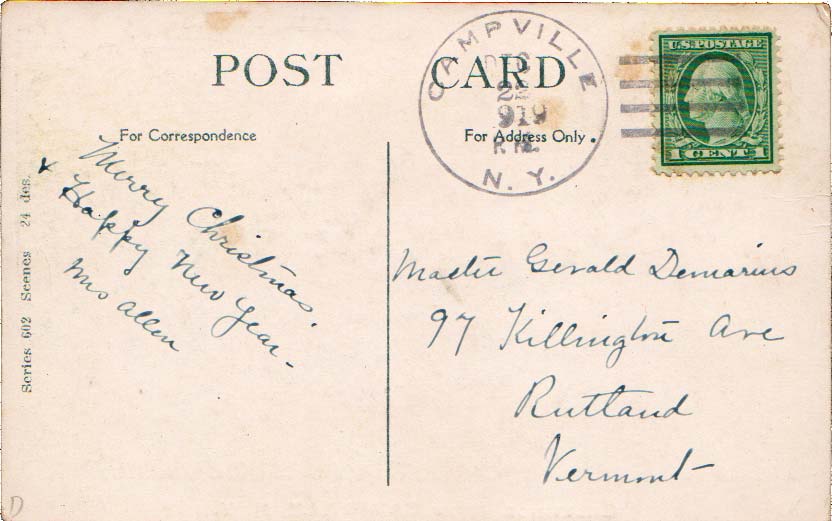 POST CARD
For Correspondence
For Address Only.
CAMPVILLE
DEC
22
1919
P.M.
N. Y.
U.S. POSTAGE
1 CENT 1
Merry Christmas,
& Happy New Year -
Mrs Allen
Master Gerald Demarius
97 Killington Ave
Rutland
Vermont
Series 602 Scenes 24 des.
D